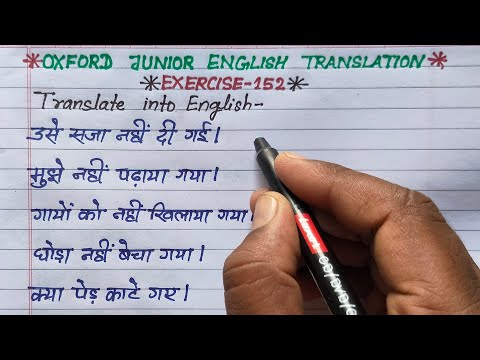 *OXFORD JUNIOR ENGLISH TRANSLATION*
*EXERCISE-152*
Translate into English-
उसे सजा नहीं दी गई।
मुझे नहीं पढ़ाया गया।
गायों को नहीं खिलाया गया।
घोड़ा नहीं बेचा गया।
क्या पेड़ काटे गए।
CD/DVD/